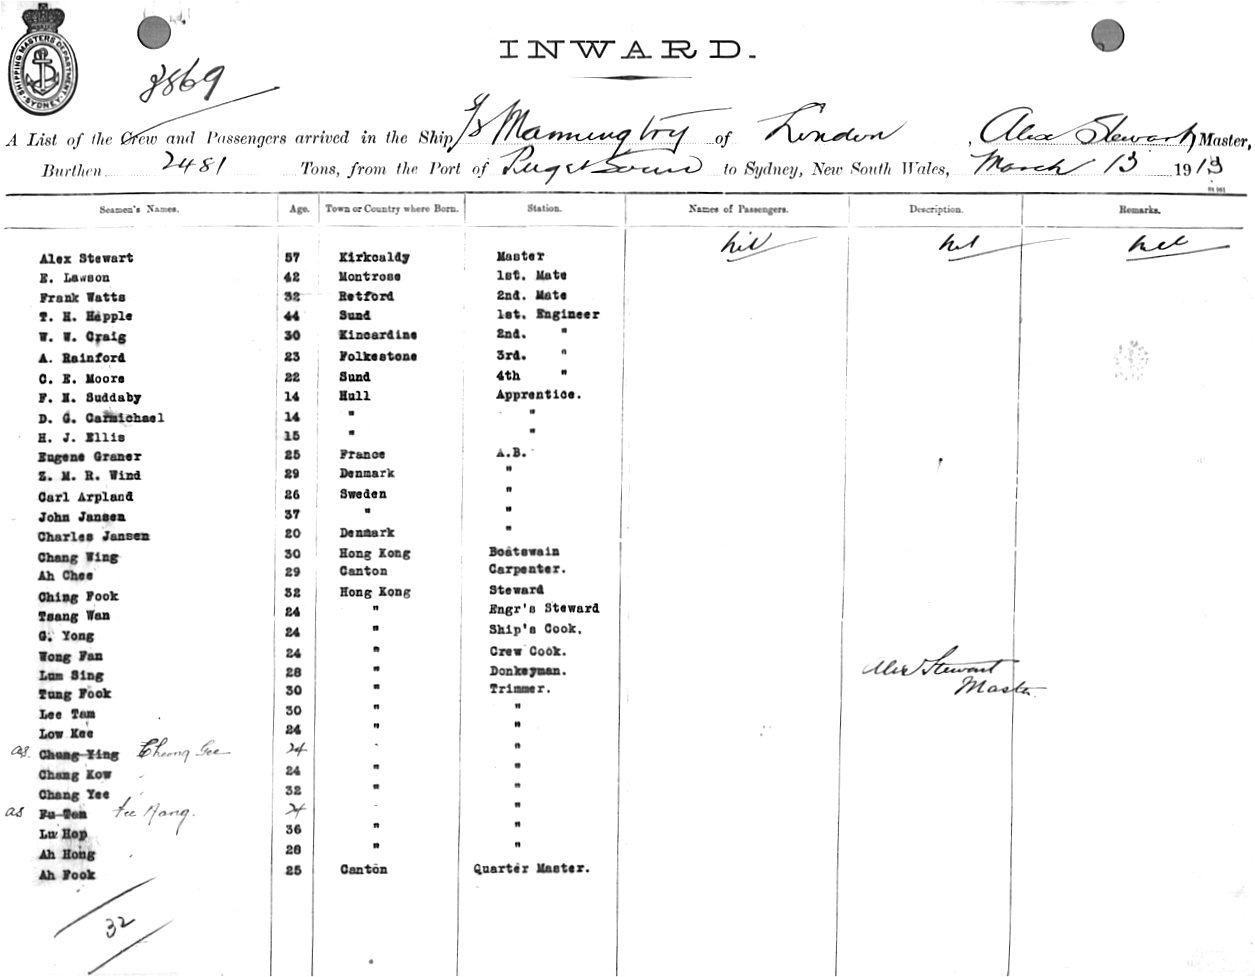 SHIPPING MASTERS DEPARTMENT SYDNEY
INWARD.
3869
A List of the Crew and Passengers arrived in the Ship S/S Mannington of London, Alex Stewart Master,
Burthen 2481 Tons, from the Port of Puget Sound to Sydney, New South Wales, March 13 1913
Seamen's Names. Age. Town or Country where Born. Station. Names of Passengers. Description. Remarks.
nil nil nil
Alex Stewart 57 Kirkcaldy Master
E. Lawson 42 Montrose 1st. Mate
Frank Watts 32 Retford 2nd. Mate
T. H. Happle 44 Sund 1st. Engineer
W. W. Craig 30 Kincardine 2nd. "
A. Rainford 23 Folkestone 3rd. "
C. E. Moore 22 Sund 4th "
F. H. Suddaby 14 Hull Apprentice.
D. G. Carmichael 14 " "
H. J. Ellis 15 " "
Eugene Graner 25 France A.B.
Z. M. R. Wind 29 Denmark "
Carl Arpland 26 Sweden "
John Jansen 37 " "
Charles Jansen 20 Denmark "
Chang Wing 30 Hong Kong Boatswain
Ah Chee 29 Canton Carpenter.
Ching Fook 32 Hong Kong Steward
Tsang Wan 24 " Engr's Steward
G. Yong 24 " Ship's Cook.
Wong Fan 24 " Crew Cook.
Lum Sing 28 " Donkeyman.
Tung Fook 30 " Trimmer.
Alex Stewart
Master
Lee Tam 30 " "
Low Kee 24 " "
as. Chung Ying Cheong Gee 24 "
Chang Kow 24 " "
Chang Yee 32 " "
as Fu Ton Fee Nang. 24 "
Lu Hop 36 " "
Ah Hong 28 " "
Ah Fook 25 Canton Quarter Master.
32